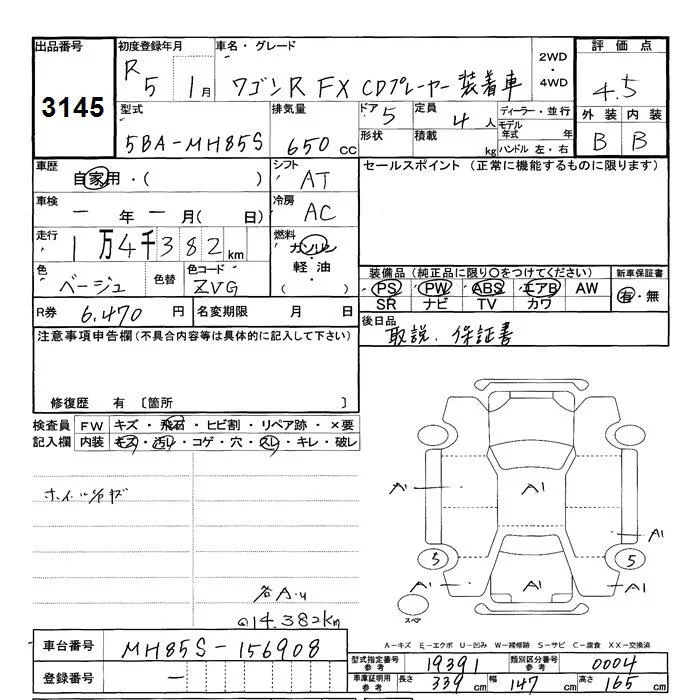 出品番号 初度登録年月 車名・グレード 評価点
3145 R 5 1月 ワゴンR FX CDプレーヤー装着車 2WD・4WD 4.5
型式 排気量 ドア 5 定員 4人 ディーラー・並行 外装 内装
5BA-MH85S 650cc 形状 積載 kg モデル年式 年 ハンドル 左・右 B B
車歴 シフト セールスポイント (正常に機能するものに限ります)
自家用・( ) AT
車検 冷房
ー年ー月( 日) AC
走行 燃料
1万4千382km ガソリン・軽油・( )
色 色替 色コード 装備品(純正品に限り○をつけてください) 新車保証書
ベージュ ZVG PS PW ABS エアB AW 有・無
SR ナビ TV カワ
R券 6,470円 名変期限 月 日 後日品
取説、保証書
注意事項申告欄(不具合内容等は具体的に記入して下さい)
修復歴 有 〔箇所 〕
検査員 FW キズ・飛石・ヒビ割・リペア跡・×要
記入欄 内装 キズ・汚レ・コゲ・穴・スレ・キレ・破レ
A1 A1 A1
3 5
A1 A1 A1
各A.u
14.382km
スペア
A-キズ E-エクボ U-凹み W-補修跡 S-サビ C-腐食 XX-交換済
車台番号 MH85S-156908
型式指定番号 参考 19391 類別区分番号 参考 0004
登録番号 ー
車庫証明用 参考 長さ 339cm 幅 147cm 高さ 165cm